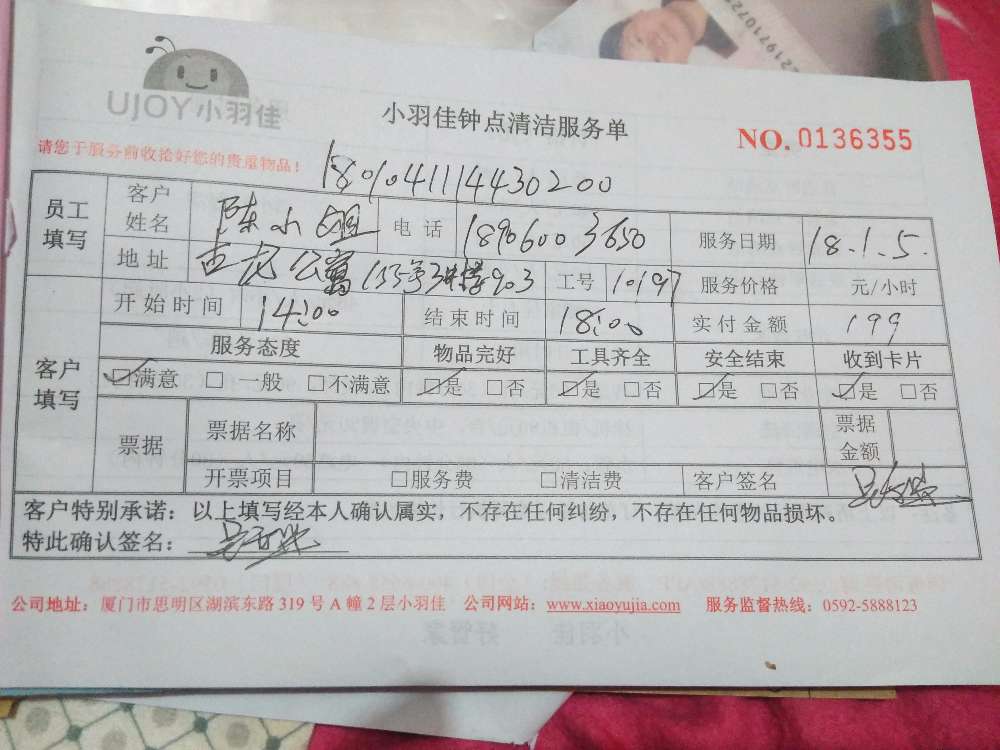 UJOY小羽佳
小羽佳钟点清洁服务单
NO. 0136355
请您于服务前收拾好您的贵重物品！
1801041114430200
员工填写 客户姓名 陈小姐 电话 18960003650 服务日期 18.1.5.
地址 古龙公寓155号3#楼903 工号 10197 服务价格 元/小时
客户填写 开始时间 14:00 结束时间 18:00 实付金额 199
服务态度 物品完好 工具齐全 安全结束 收到卡片
☑满意 □一般 □不满意 ☑是 □否 ☑是 □否 ☑是 □否 ☑是 □否
票据 票据名称 票据金额
开票项目 □服务费 □清洁费 客户签名
客户特别承诺：以上填写经本人确认属实，不存在任何纠纷，不存在任何物品损坏。
特此确认签名：
公司地址：厦门市思明区湖滨东路 319 号 A 幢 2 层小羽佳 公司网站：www.xiaoyujia.com 服务监督热线：0592-5888123